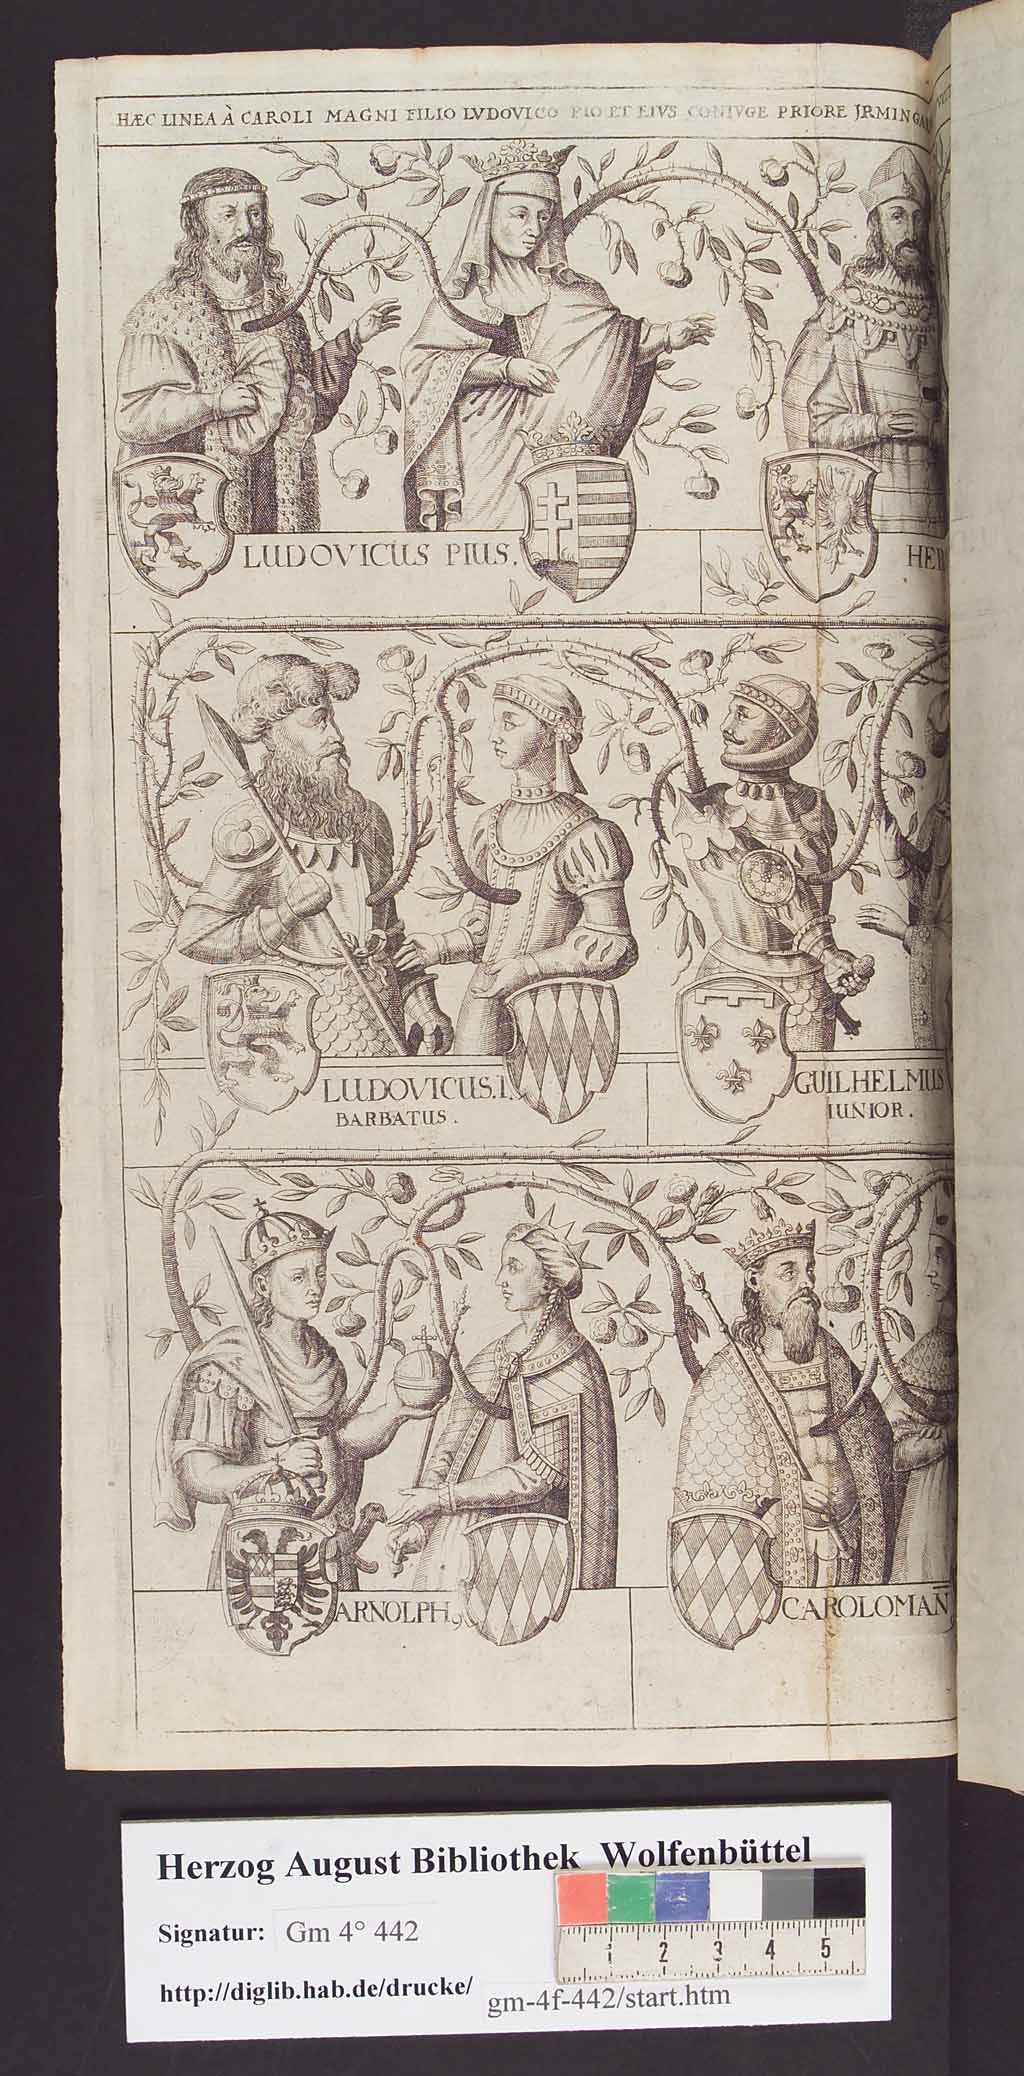 HÆC LINEA À CAROLI MAGNI FILIO LVDOVICO PIO ET EIVS CONIVGE PRIORE JRMINGA
LUDOVICUS PIUS.
HE
LUDOVICUS.I.
BARBATUS.
GUILHELMUS
IUNIOR.
ARNOLPH9
CAROLOMAN̄
Herzog August Bibliothek Wolfenbüttel
Signatur: Gm 4° 442
1 2 3 4 5
http://diglib.hab.de/drucke/ gm-4f-442/start.htm